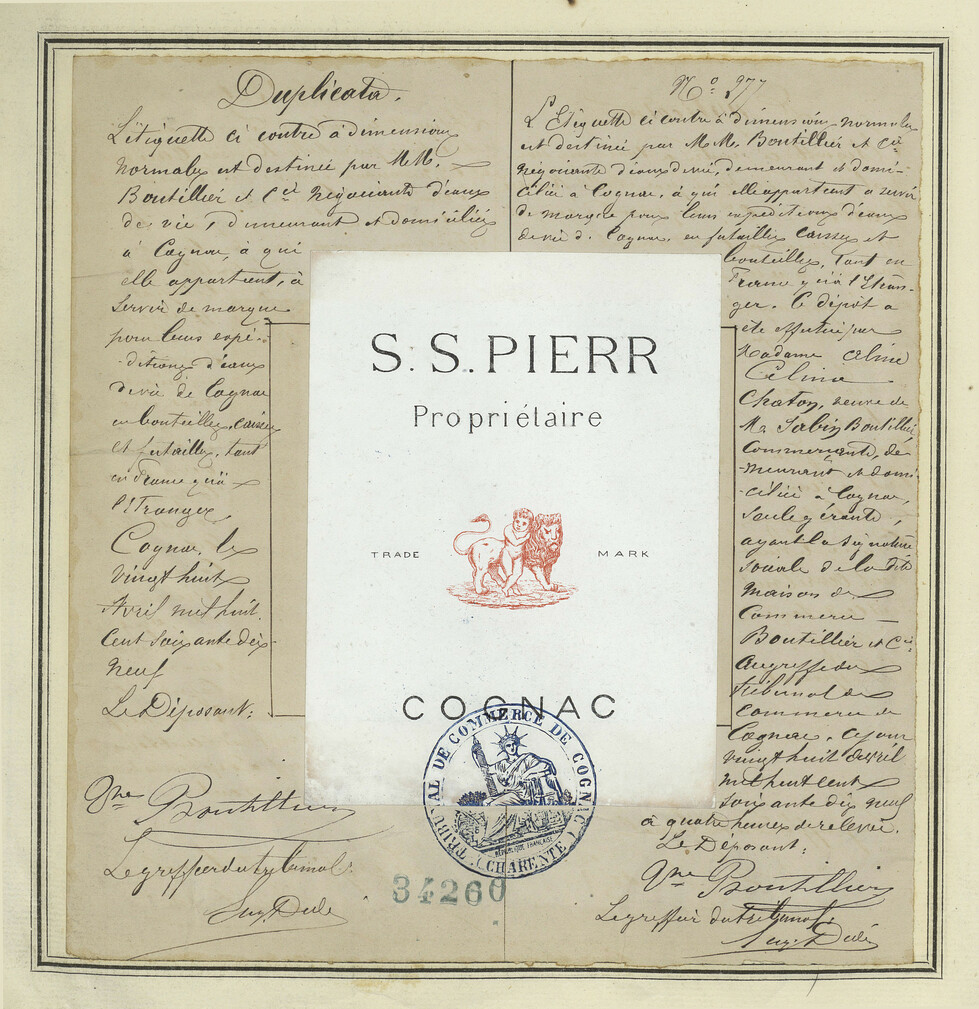 Duplicata.
L'étiquette ci contre à dimensions
normales est destinée par MM.
Boutillier et Cie Négociants d'eaux
de vie, demeurant et domiciliés
à Cognac, à qui
elle appartient, à
servir de marque
pour leurs expé-
-ditions d'eaux
de vie de Cognac
en bouteilles, caisses
et futailles, tant
en France qu'à
l'Etranger
Cognac, le
vingt huit
Avril mil huit
Cent soixante dix
neuf
Le Déposant:
Vve Boutillier
Le greffier du tribunal:
No 377
L'Etiquette ci contre à dimensions normales
est destinée par MM. Boutillier et Cie
négociants d'eaux de vie, demeurant et domi-
-ciliés à Cognac, à qui elle appartient à servir
de marque pour leurs expéditions d'eaux
de vie de Cognac en futailles caisses et
bouteilles, tant en
France qu'à l'Etran-
ger. Ce dépôt a
été effectué par
Madame Céline
Célina
Chaton, veuve de
Mr Sabin Boutillier
Commerçante, de-
meurant et domi-
-ciliée à Cognac,
seule gérante,
ayant la signature
sociale de la dite
maison de
Commerce
Boutillier et Cie
au greffe du
tribunal de
commerce de
Cognac, ce jour
vingt huit avril
mil huit cent
soixante dix neuf
à quatre heures de relevée.
Le Déposant:
Vve Boutillier
Le greffier du tribunal:
S.S.PIERR
Propriétaire
TRADE MARK
COGNAC
TRIBUNAL DE COMMERCE DE COGNAC
(CHARENTE)
RÉPUBLIQUE FRANÇAISE
34260